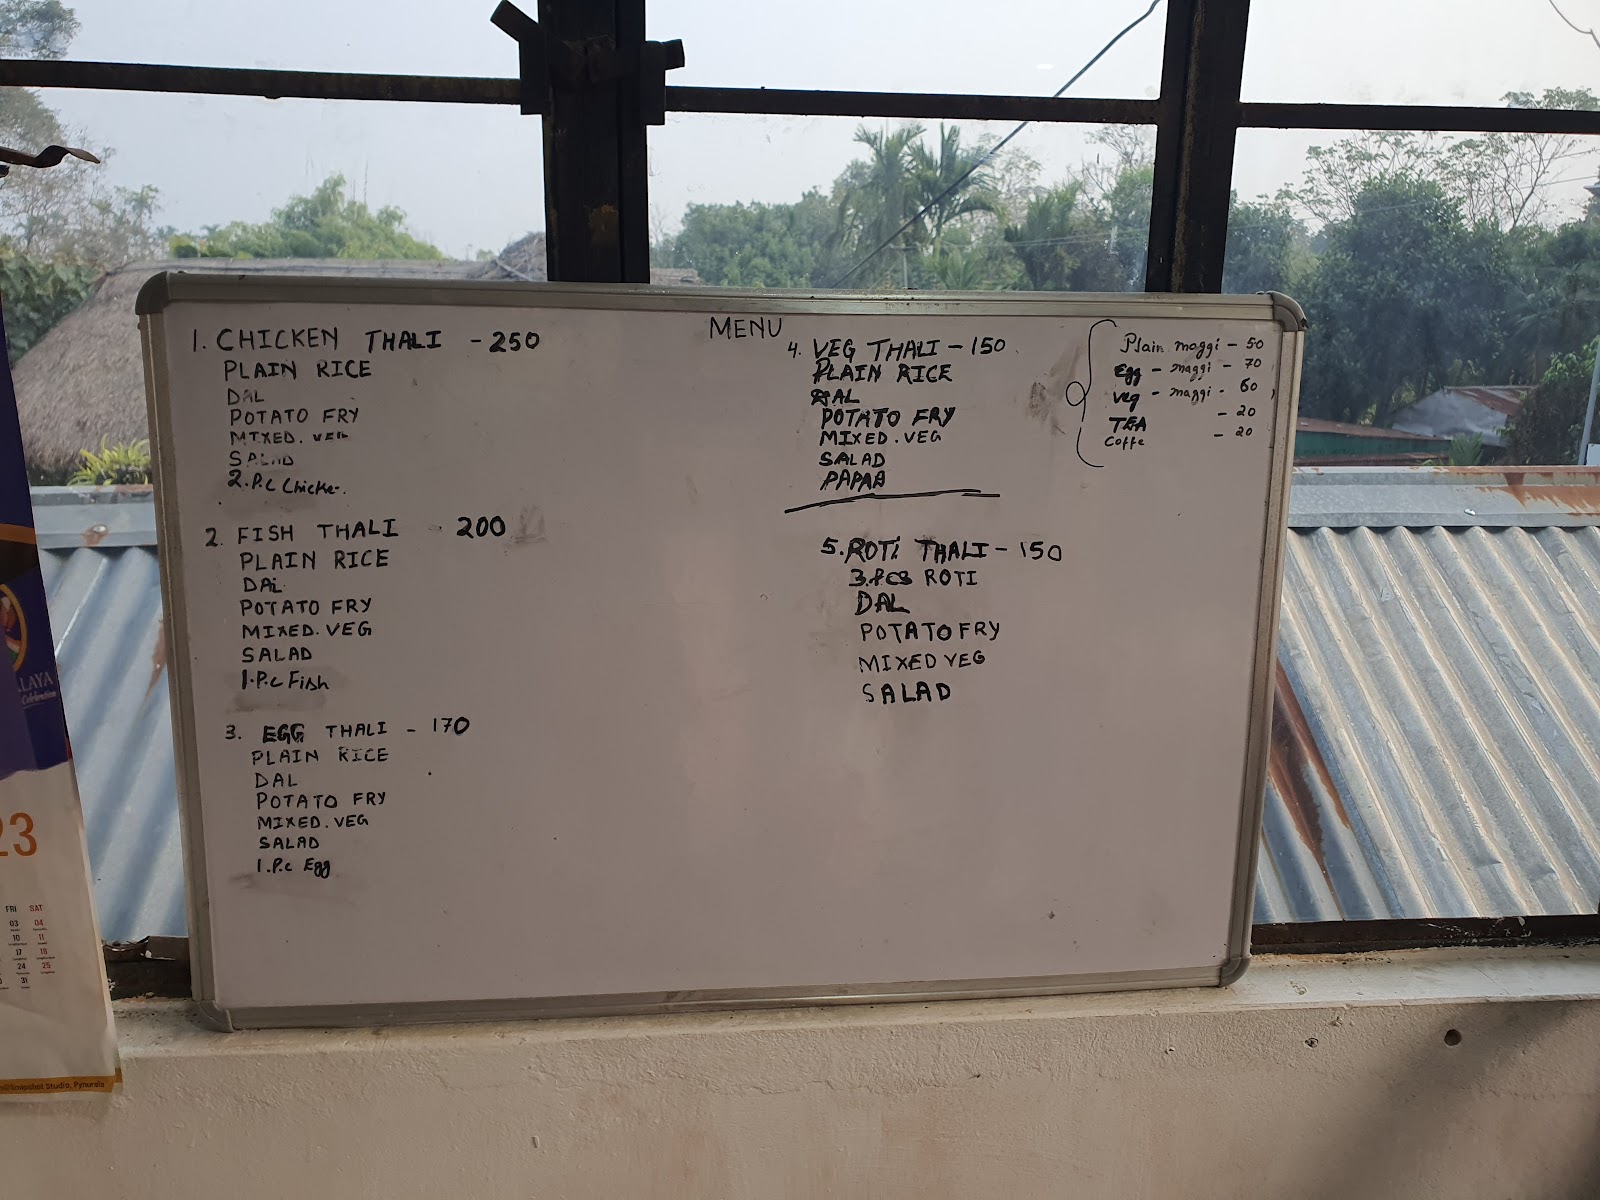 MENU
1. CHICKEN THALI - 250
PLAIN RICE
DAL
POTATO FRY
MIXED. VEG
SALAD
2. P.C Chicken.
2. FISH THALI - 200
PLAIN RICE
DAL
POTATO FRY
MIXED. VEG
SALAD
1. P.C Fish
3. EGG THALI - 170
PLAIN RICE
DAL
POTATO FRY
MIXED. VEG
SALAD
1. P.c Egg
4. VEG THALI - 150
PLAIN RICE
DAL
POTATO FRY
MIXED. VEG
SALAD
PAPAD
5. ROTI THALI - 150
3. PCS ROTI
DAL
POTATO FRY
MIXED VEG
SALAD
Plain maggi - 50
Egg - maggi - 70
veg - maggi - 60
TEA - 20
Coffe - 20
LAYA
Celebration
23
FRI SAT
03 04
10 11
17 18
24 25
31
Snapshot Studio, Pynursla